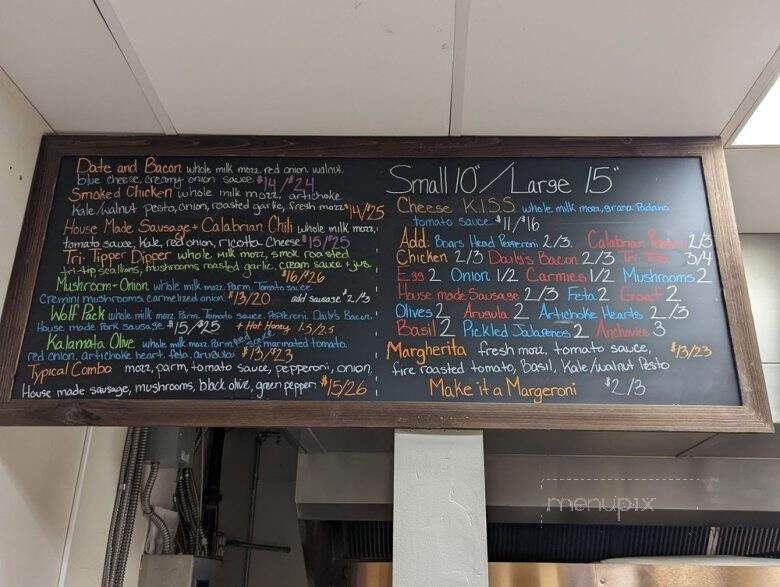 Date and Bacon whole milk mozz, red onion, walnut,
blue cheese, creamy onion sauce $14/$24
Smoked Chicken whole milk mozz, artichoke,
Kale/walnut pesto, onion, roasted garlic, fresh mozz $14/$25
House Made Sausage + Calabrian Chili whole milk mozz,
tomato sauce, Kale, red onion, ricotta Cheese $15/$25
Tri-Tipper Dipper whole milk mozz, smok roasted
tri-tip scallions, mushrooms roasted garlic, cream sauce + jus.
$16/$26
Mushroom-Onion whole milk mozz, Parm, Tomato sauce
Cremini mushrooms carmelized onion $13/20 add sausage $2/$3
Wolf Pack whole milk mozz, Parm, Tomato sauce, Pepperoni, Daily's Bacon,
House made Pork sausage $15/$25 + Hot Honey 1.5/2.5
Kalamata Olive whole milk mozz, Parm, red sauce marinated tomato,
red onion, artichoke heart, feta, arugula $13/$23
Typical Combo mozz, parm, tomato sauce, pepperoni, onion,
House made sausage, mushrooms, black olive, green pepper $15/26
Small 10"/Large 15"
Cheese K.I.S.S. whole milk mozz, Grana Padano
tomato sauce $11/$16
Add: Boars Head Pepperoni 2/3. Calabrian 2/3
Chicken 2/3 Daily's Bacon 2/3 Tri-Tip 3/4
Egg 2 Onion 1/2 Carmies 1/2 Mushrooms 2
House made Sausage 2/3 Feta 2 Goat 2
Olives 2 Arugula 2 Artichoke Hearts 2/3
Basil 2 Pickled Jalapenos 2 Anchovies 3
Margherita fresh mozz, tomato sauce, $13/23
fire roasted tomato, Basil, Kale/walnut Pesto
Make it a Margeroni $2/3
menupix